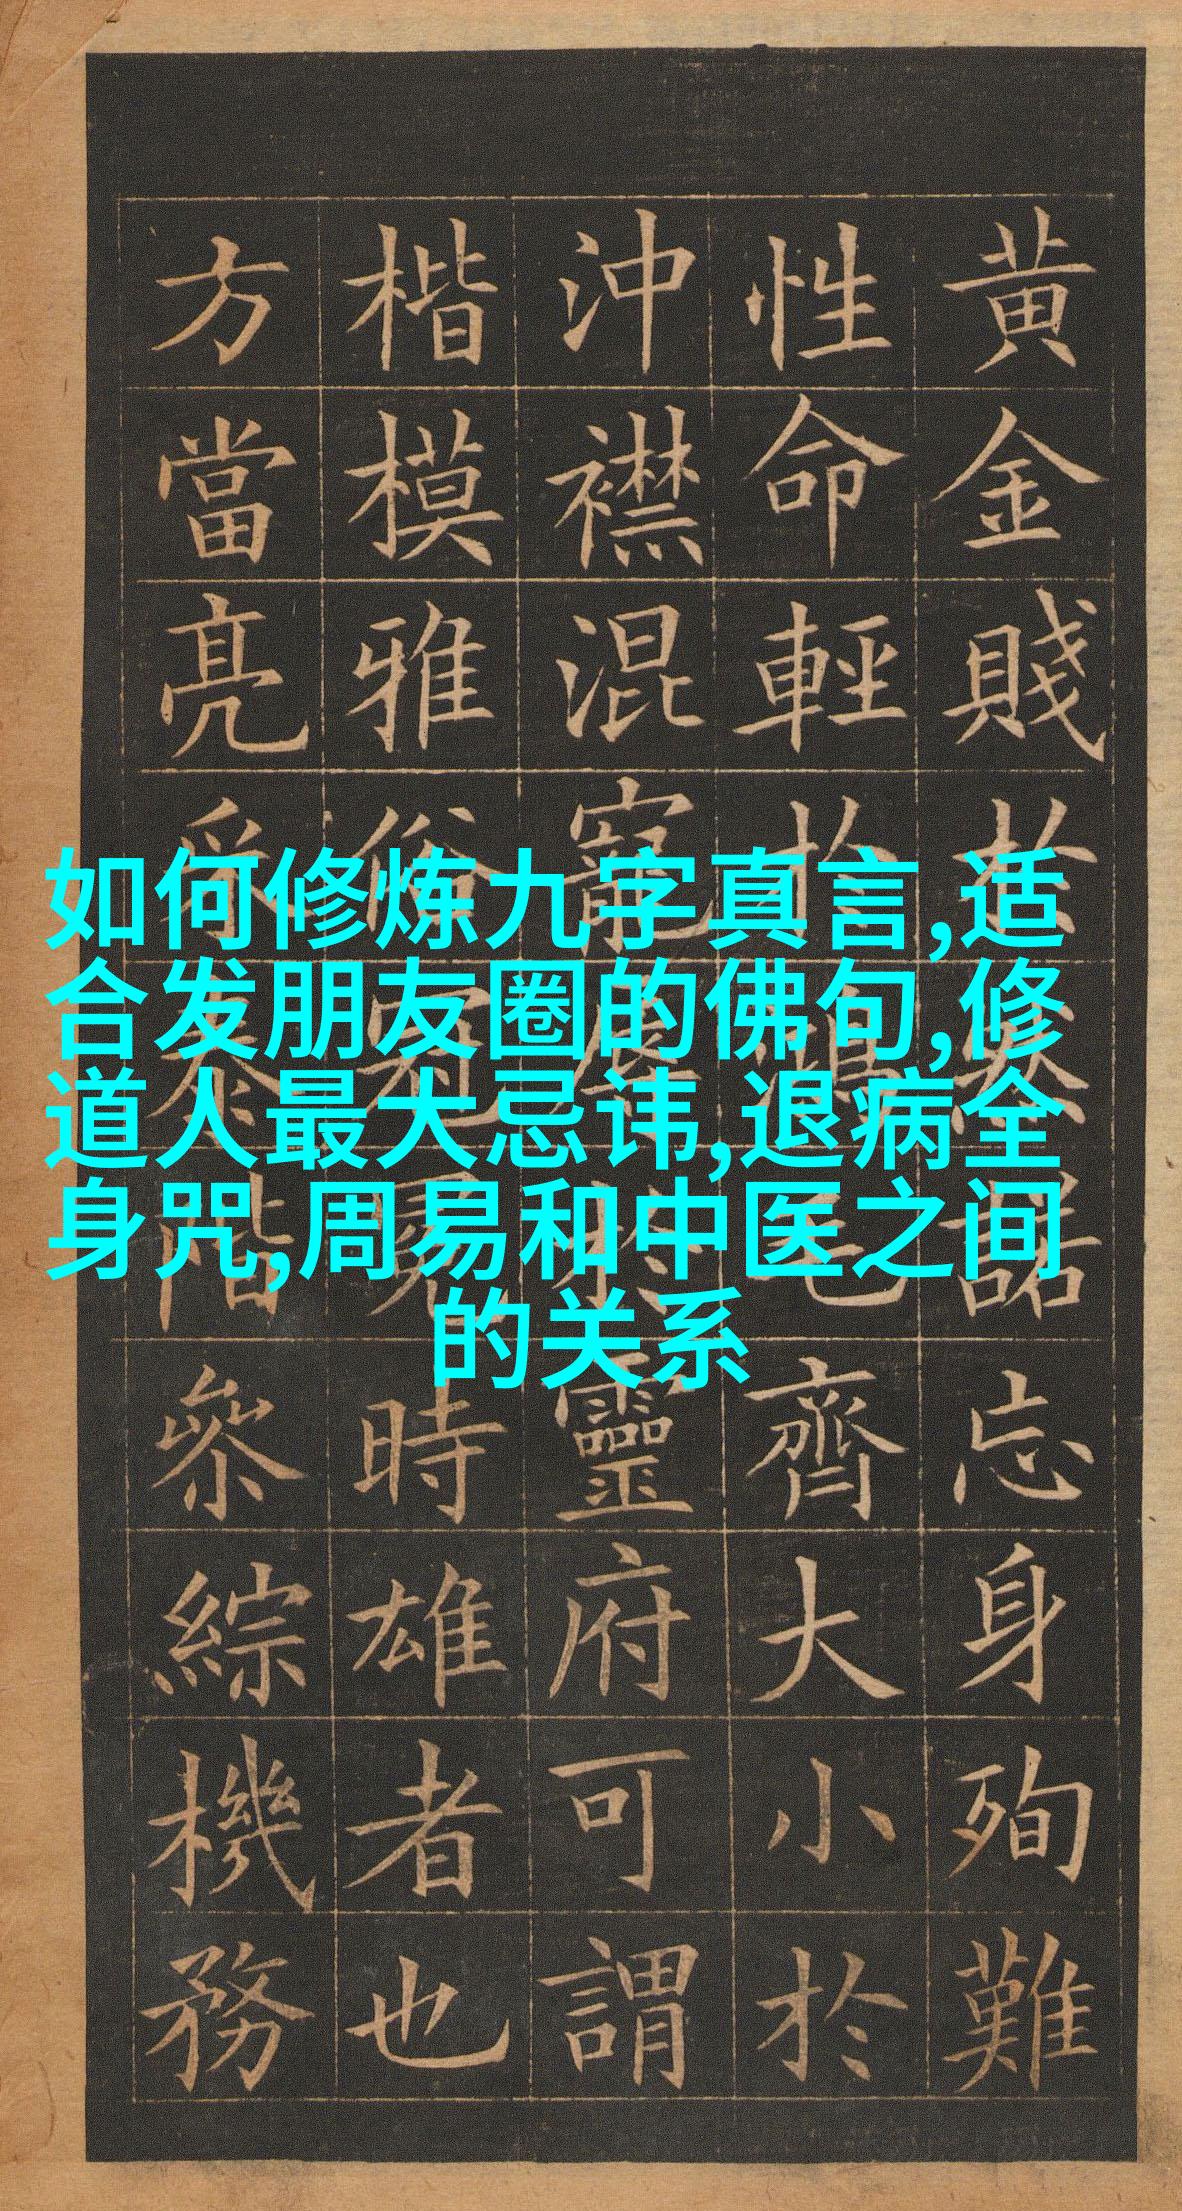 黄金賤於然諾忘身殉難
性命輕於鴻毛齊大小於
沖襟混寵辱於靈府可謂
楷模雅俗冠冕時雄者也
方當亮采泰階參綜機務
如何修炼九字真言,适
合发朋友圈的佛句,修
道人最大忌讳,退病全
身咒,周易和中医之间
的关系